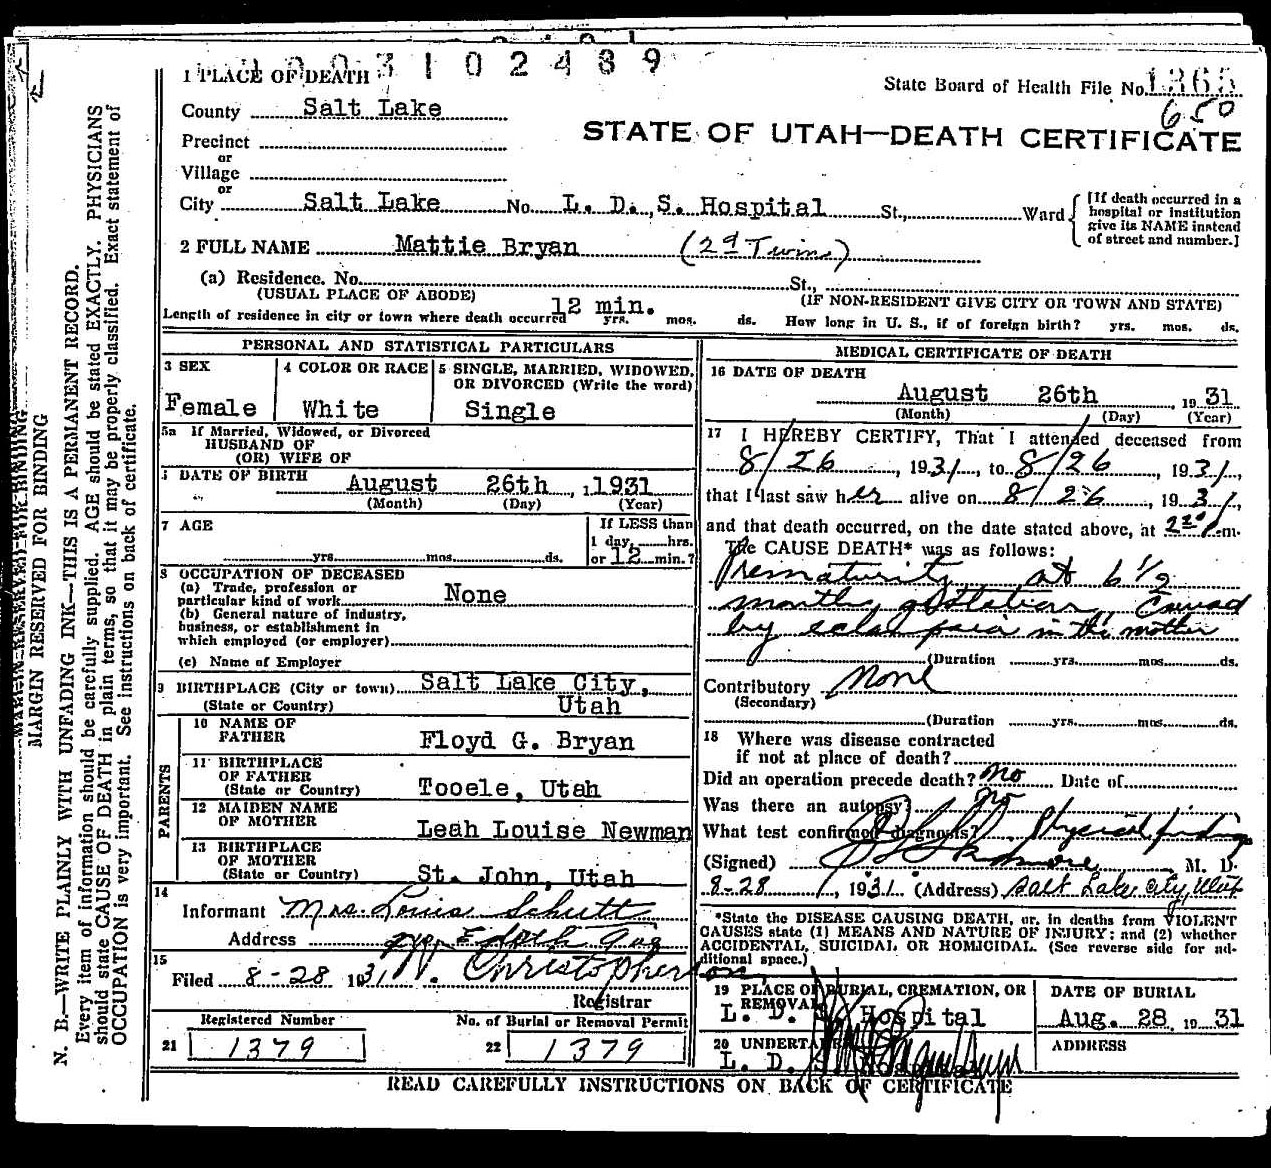 1003102489
1 PLACE OF DEATH
State Board of Health File No. 1365
650
County Salt Lake
STATE OF UTAH—DEATH CERTIFICATE
Precinct
or
Village
or
City Salt Lake No. L. D. S. Hospital St., Ward
[If death occurred in a hospital or institution give its NAME instead of street and number.]
2 FULL NAME Mattie Bryan (2d Twins)
(a) Residence. No. St.,
(USUAL PLACE OF ABODE) (IF NON-RESIDENT GIVE CITY OR TOWN AND STATE)
Length of residence in city or town where death occurred 12 min. yrs. mos. ds. How long in U. S., if of foreign birth? yrs. mos. ds.
PERSONAL AND STATISTICAL PARTICULARS
3 SEX
Female
4 COLOR OR RACE
White
5 SINGLE, MARRIED, WIDOWED,
OR DIVORCED (Write the word)
Single
5a If Married, Widowed, or Divorced
HUSBAND OF
(OR) WIFE OF
DATE OF BIRTH August 26th, 1931
(Month) (Day) (Year)
7 AGE
yrs. mos. ds.
If LESS than
1 day, hrs.
or 12 min.?
8 OCCUPATION OF DECEASED
(a) Trade, profession or
particular kind of work None
(b) General nature of industry,
business, or establishment in
which employed (or employer)
(c) Name of Employer
9 BIRTHPLACE (City or town) Salt Lake City,
(State or Country) Utah
PARENTS
10 NAME OF
FATHER Floyd G. Bryan
11 BIRTHPLACE
OF FATHER
(State or Country) Tooele, Utah
12 MAIDEN NAME
OF MOTHER Leah Louise Newman
13 BIRTHPLACE
OF MOTHER
(State or Country) St. John, Utah
14
Informant Mrs. Louis Schutt
Address
15
Filed 8-28 1931 Christopherson,
Registrar
Registered Number
21 1379
No. of Burial or Removal Permit
22 1379
MEDICAL CERTIFICATE OF DEATH
16 DATE OF DEATH
August 26th, 1931
(Month) (Day) (Year)
17 I HEREBY CERTIFY, That I attended deceased from
8/26, 1931, to 8/26, 1931,
that I last saw her alive on 8/26, 1931,
and that death occurred, on the date stated above, at m.
The CAUSE DEATH* was as follows:
Prematurity at 6 1/2
months gestation, Caused
by in the mother
(Duration yrs. mos. ds.
Contributory None
(Secondary)
(Duration yrs. mos. ds.
18 Where was disease contracted
if not at place of death?
Did an operation precede death? No Date of
Was there an autopsy? No
What test confirmed diagnosis? Physical findings
(Signed) M. D.
8-28, 1931 (Address) Salt Lake City, Utah
*State the DISEASE CAUSING DEATH, or, in deaths from VIOLENT
CAUSES state (1) MEANS AND NATURE OF INJURY; and (2) whether
ACCIDENTAL, SUICIDAL OR HOMICIDAL. (See reverse side for ad-
ditional space.)
19 PLACE OF BURIAL, CREMATION, OR
REMOVAL
L. D. S. Hospital
DATE OF BURIAL
Aug. 28, 1931
20 UNDERTAKER
L. D. S.
ADDRESS
READ CAREFULLY INSTRUCTIONS ON BACK OF CERTIFICATE
MARGIN RESERVED FOR BINDING
N. B.—WRITE PLAINLY WITH UNFADING INK—THIS IS A PERMANENT RECORD.
Every item of information should be carefully supplied. AGE should be stated EXACTLY. PHYSICIANS
should state CAUSE OF DEATH in plain terms, so that it may be properly classified. Exact statement of
OCCUPATION is very important. See instructions on back of certificate.